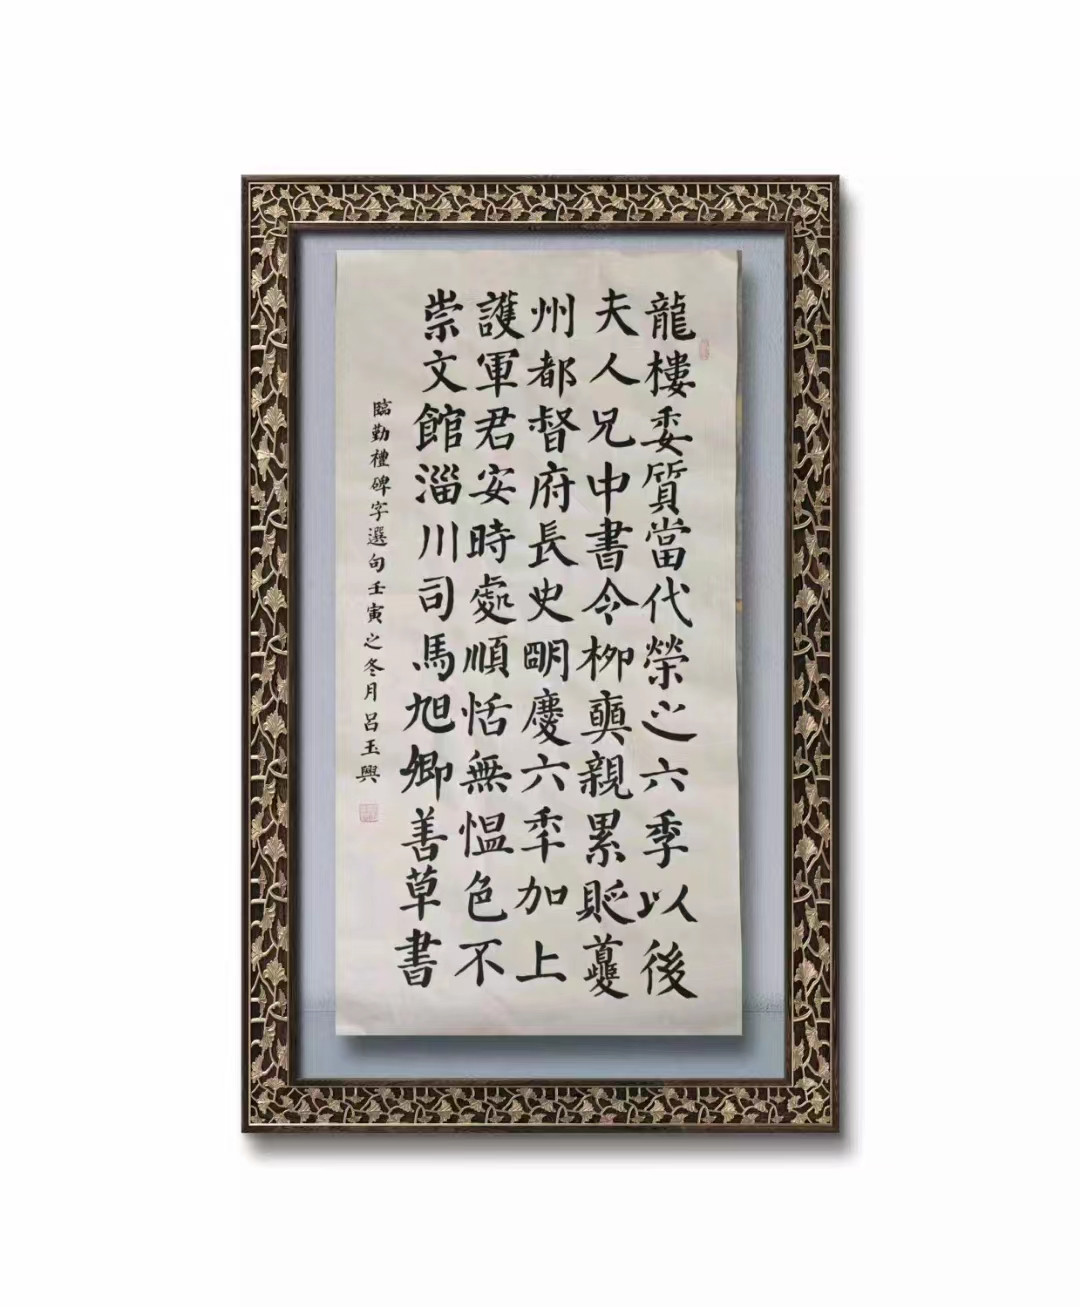 龍樓委質當代榮之六季以後
夫人兄中書令柳奭親累貶夔
州都督府長史朙慶六年加上
護軍君安時處順恬無慍色不
崇文館淄川司馬旭卿善草書
臨勤禮碑字選句壬寅之冬月呂玉興